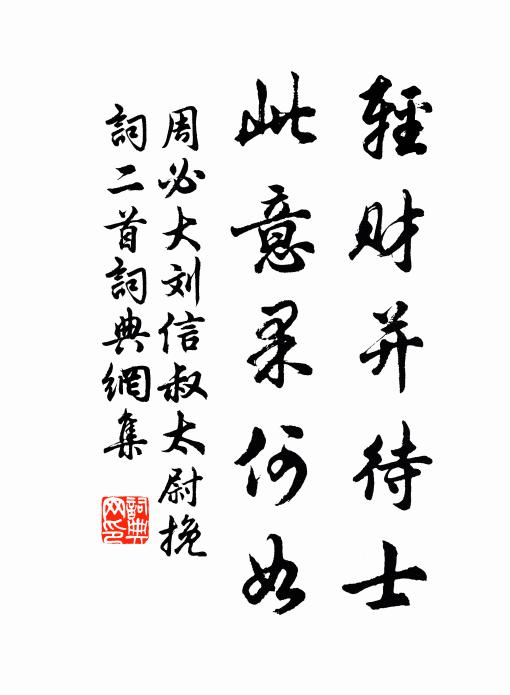 輕财并待士
此意果何如
周必大刘信叔太尉挽
詞二首詞典網集
詞典网印